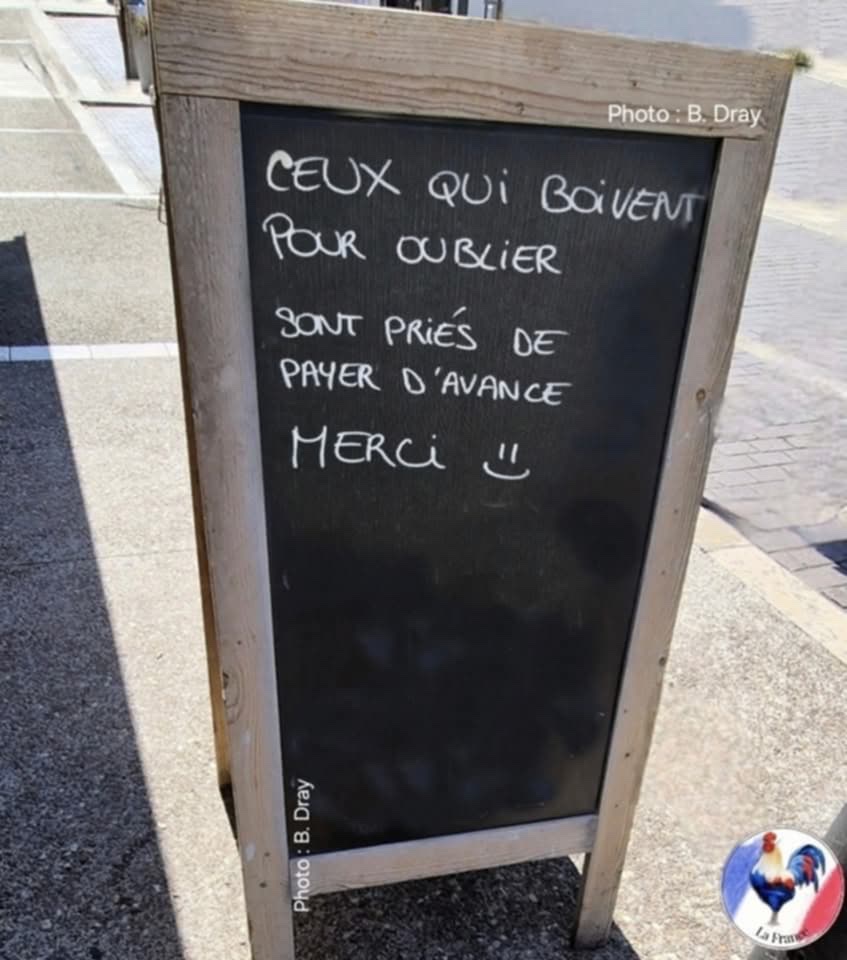 Photo : B. Dray
CEUX QUi BOiVENT
POUR OUBLiER
SONT PRiÉS DE
PAYER D'AVANCE
MERCi
Photo : B. Dray
La France